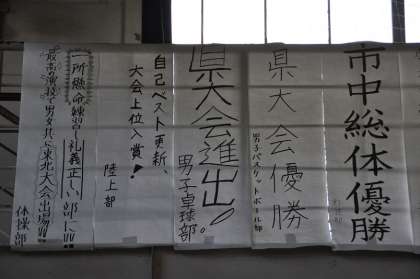 市中総体優勝
県大会優勝
男子バスケットボール部
県大会進出!
男子卓球部。
自己ベスト更新、
大会上位入賞!
陸上部
一所懸命練習し礼義正しい部に!!
最高の演技で男女共に東北大会出場!!
体操部